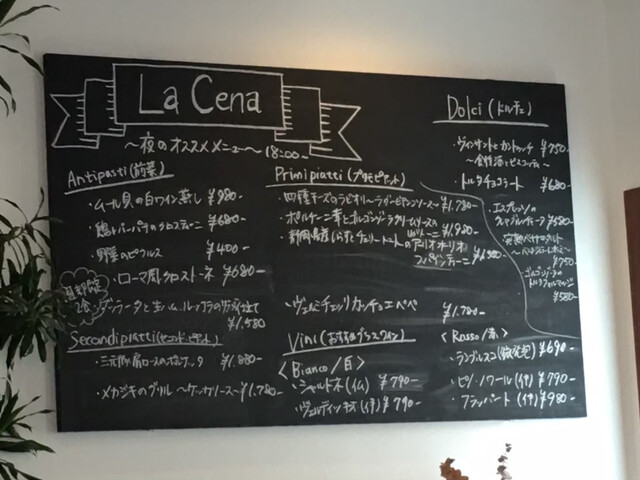 La Cena
〜夜のオススメメニュー〜 18:00〜
Antipasti (前菜)
・ムール貝の白ワイン蒸し ¥980-
・鶏レバーパテのクロスティーニ ¥680-
・野菜のピクルス ¥400-
・ローマ風クロストーネ ¥680-
¥1.580
Secondipiatti
・三元豚肩ロースの ¥1.880-
・メカジキのグリル 〜ケッカソース〜 ¥1.780-
Prinipiatti (プリモピアット)
・四種チーズのラビオリ ¥1.780-
・ポルチーニ茸とゴルゴンゾーラクリームソースの
¥1.980-
・静岡県産しらすとチェリートマトのアーリオオーリオ
スパゲッティーニ ¥1.580
・ヴェルミチェッリ カッチョエペペ ¥1.780-
Vini (おすすめグラスワイン)
〈Bianco/白〉
・シャルドネ (仏) ¥790-
・ヴェルディッキオ (伊) ¥790-
〈Rosso/赤〉
・ランブルスコ (微発泡) ¥690-
・ピノ・ノワール (伊) ¥790-
・フラッパート (伊) ¥980-
Dolci (ドルチェ)
・ヴィンサントとカントゥッチ ¥750-
〜食後酒とビスコッティ〜
・トルタチョコラート ¥680-
・エスプレッソの
¥580-
¥750-
ゴルゴンゾーラの
¥580-